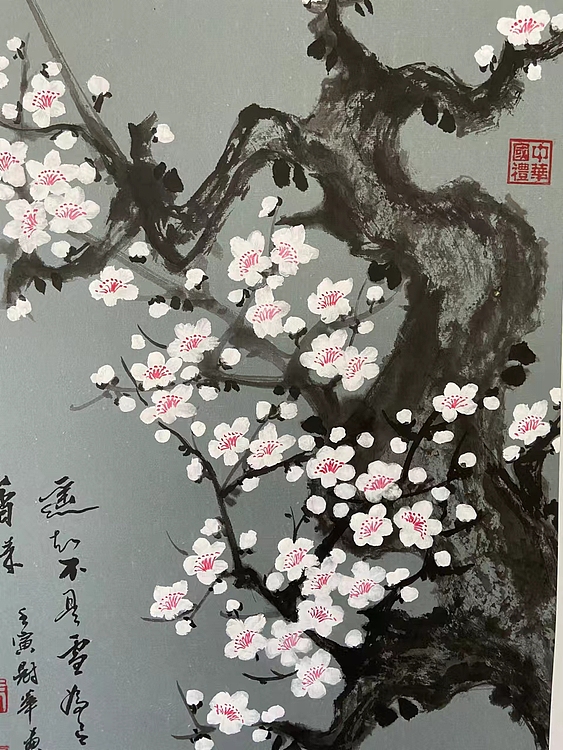 中華
國禮
遥知不是雪為有
香来
壬寅尉華